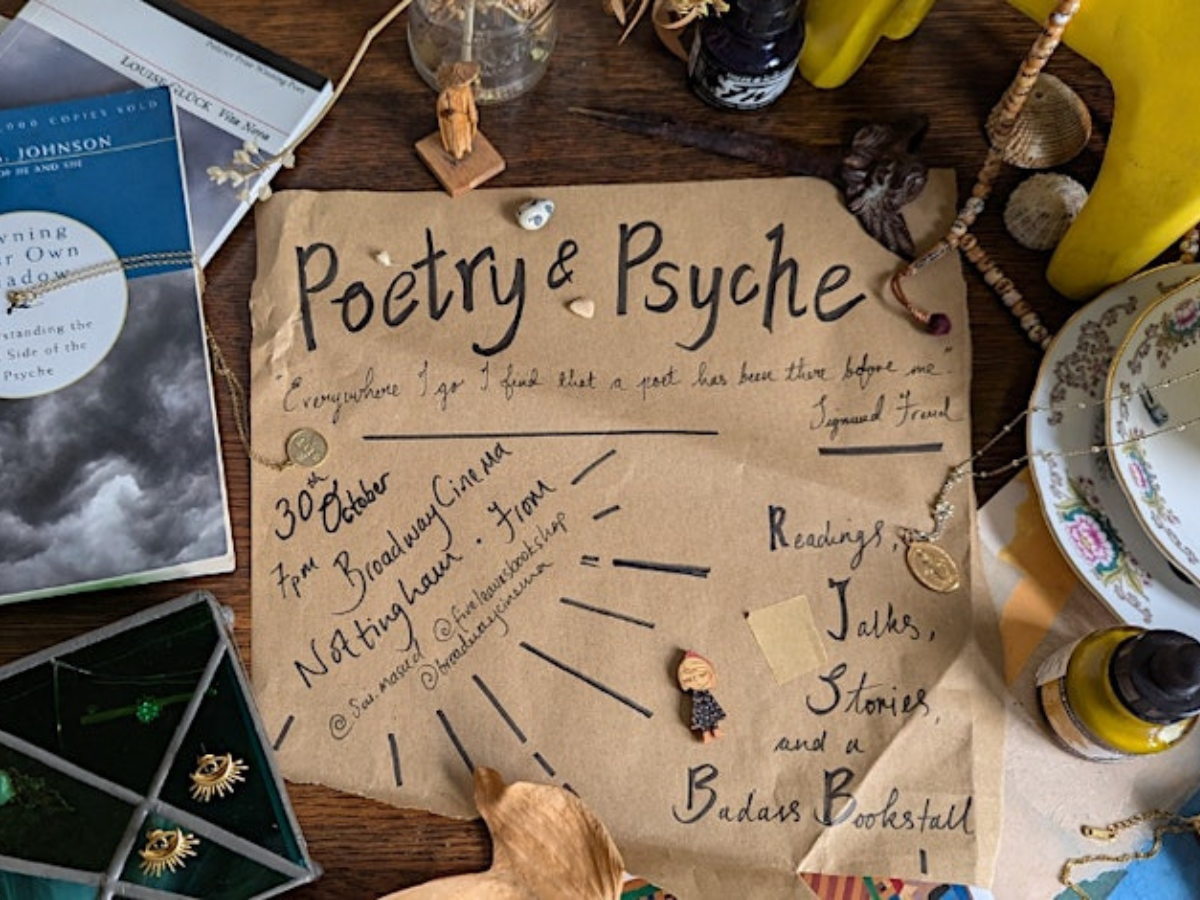 Pulitzer Prize Winning Poet
LOUISE GLÜCK Vita Nova
,000 COPIES SOLD
. JOHNSON
OF HE AND SHE
wning
ur Own
hadow
rstanding the
Side of the
Psyche
Poetry & Psyche
"Everywhere I go I find that a poet has been there before me"
Sigmund Freud
30th October
7pm Broadway Cinema
Nottingham . From
@fiveleavesbookshop
@broadwaycinema
Readings,
Talks,
Stories,
and a
Badass Bookstall